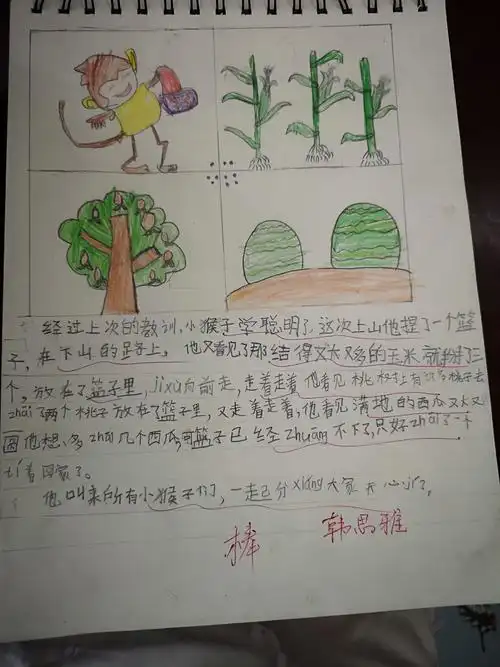 经过上次的教训,小猴子学聪明了,这次上山他提了一个篮
子,在下山的路上,他又看见了那结得又大又多的玉米就掰了三
个,放在了篮子里,jixù向前走,走着走着他看见桃树上有许多桃子去
zhāi了两个桃子放在了篮子里,又走着走着,他看见满地的西瓜又大又
圆他想多zhāi几个西瓜,可篮子已经zhuāng不下了,只好zhāi了一个
tí着回家了。
他叫来所有小猴子们,一走己分xiǎng大家
棒 韩思雅